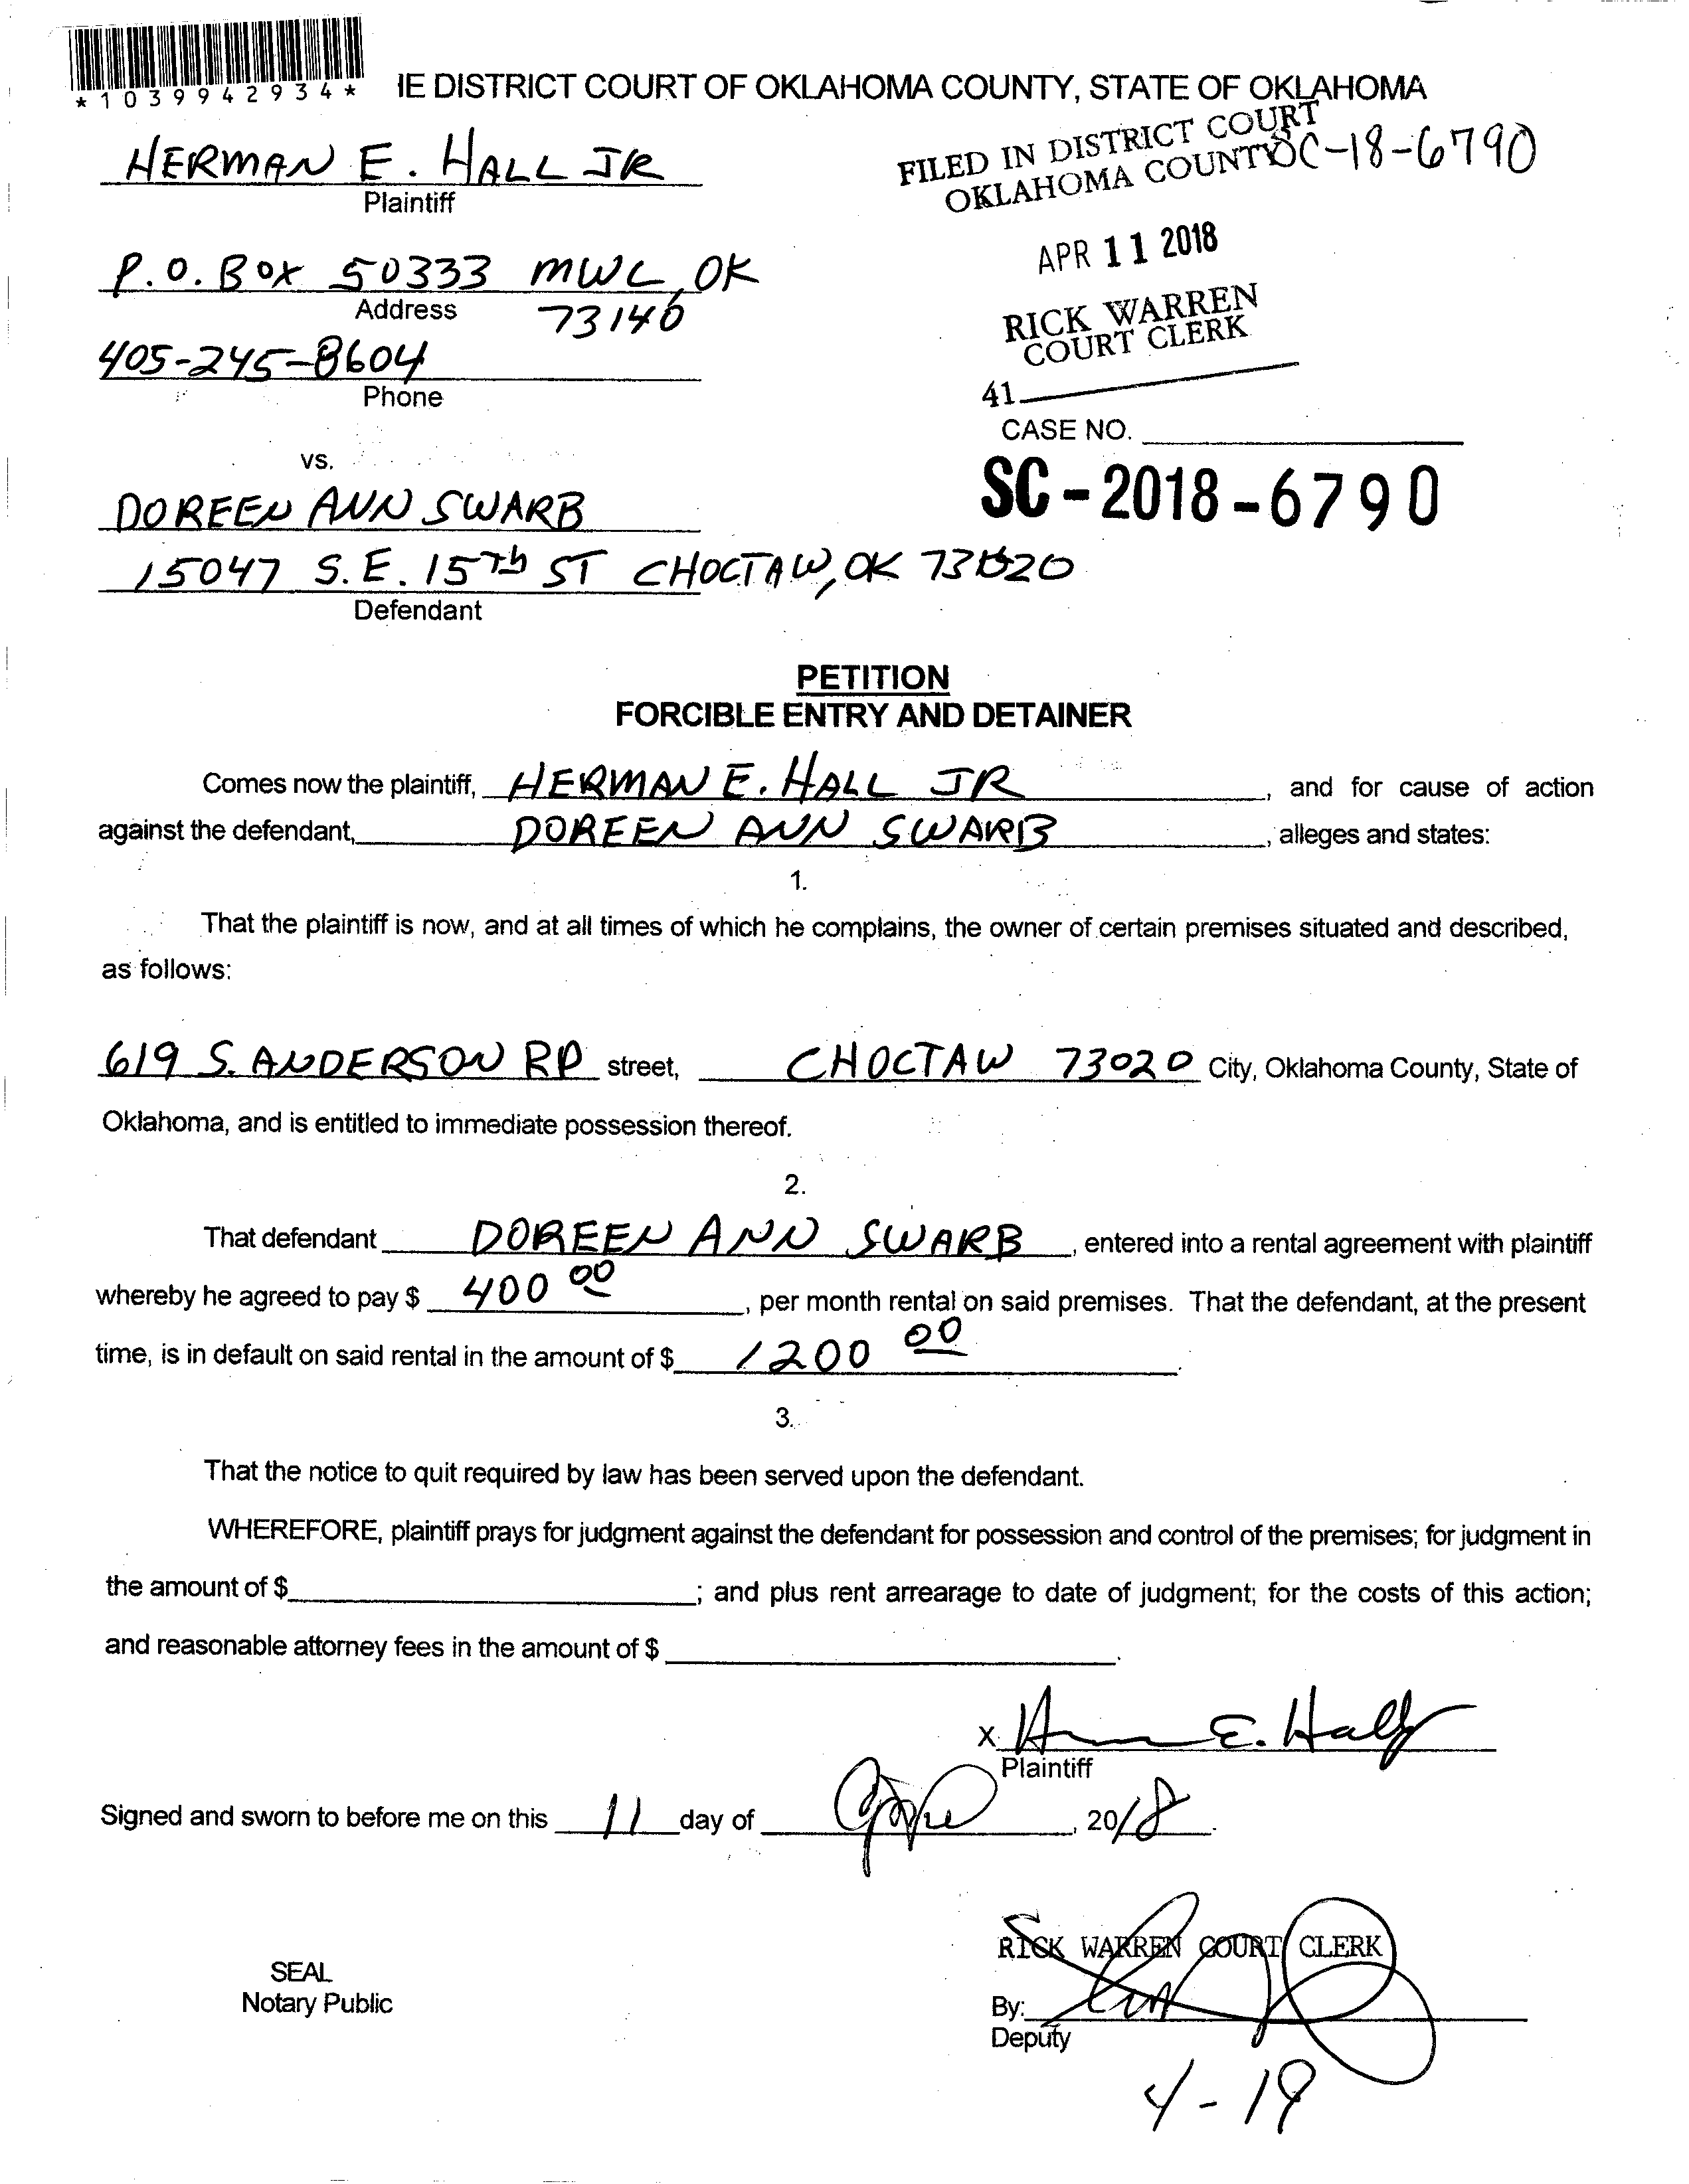 *1039942934*
IE DISTRICT COURT OF OKLAHOMA COUNTY, STATE OF OKLAHOMA
HERMAN E. HALL JR
Plaintiff
FILED IN DISTRICT COURT
OKLAHOMA COUNTY
SC-18-6790
APR 11 2018
RICK WARREN
COURT CLERK
41
P.O. BOX 50333 MWC, OK
Address
73140
405-245-8604
Phone
CASE NO.
SC-2018-6790
vs.
DOREEN ANN SWARB
15047 S.E. 15Th ST CHOCTAW, OK 73020
Defendant
PETITION
FORCIBLE ENTRY AND DETAINER
Comes now the plaintiff, HERMAN E. HALL JR, and for cause of action
against the defendant, DOREEN ANN SWARB, alleges and states:
1.
That the plaintiff is now, and at all times of which he complains, the owner of certain premises situated and described,
as follows:
619 S. ANDERSON RD street, CHOCTAW 73020 City, Oklahoma County, State of
Oklahoma, and is entitled to immediate possession thereof.
2.
That defendant DOREEN ANN SWARB, entered into a rental agreement with plaintiff
whereby he agreed to pay $ 400 00, per month rental on said premises. That the defendant, at the present
time, is in default on said rental in the amount of $ 1200 00.
3.
That the notice to quit required by law has been served upon the defendant.
WHEREFORE, plaintiff prays for judgment against the defendant for possession and control of the premises; for judgment in
the amount of $ ; and plus rent arrearage to date of judgment; for the costs of this action;
and reasonable attorney fees in the amount of $ .
X E. Hall
Plaintiff
Signed and sworn to before me on this 11 day of , 2018.
RICK WARREN COURT CLERK
SEAL
Notary Public
By:
Deputy
4-19